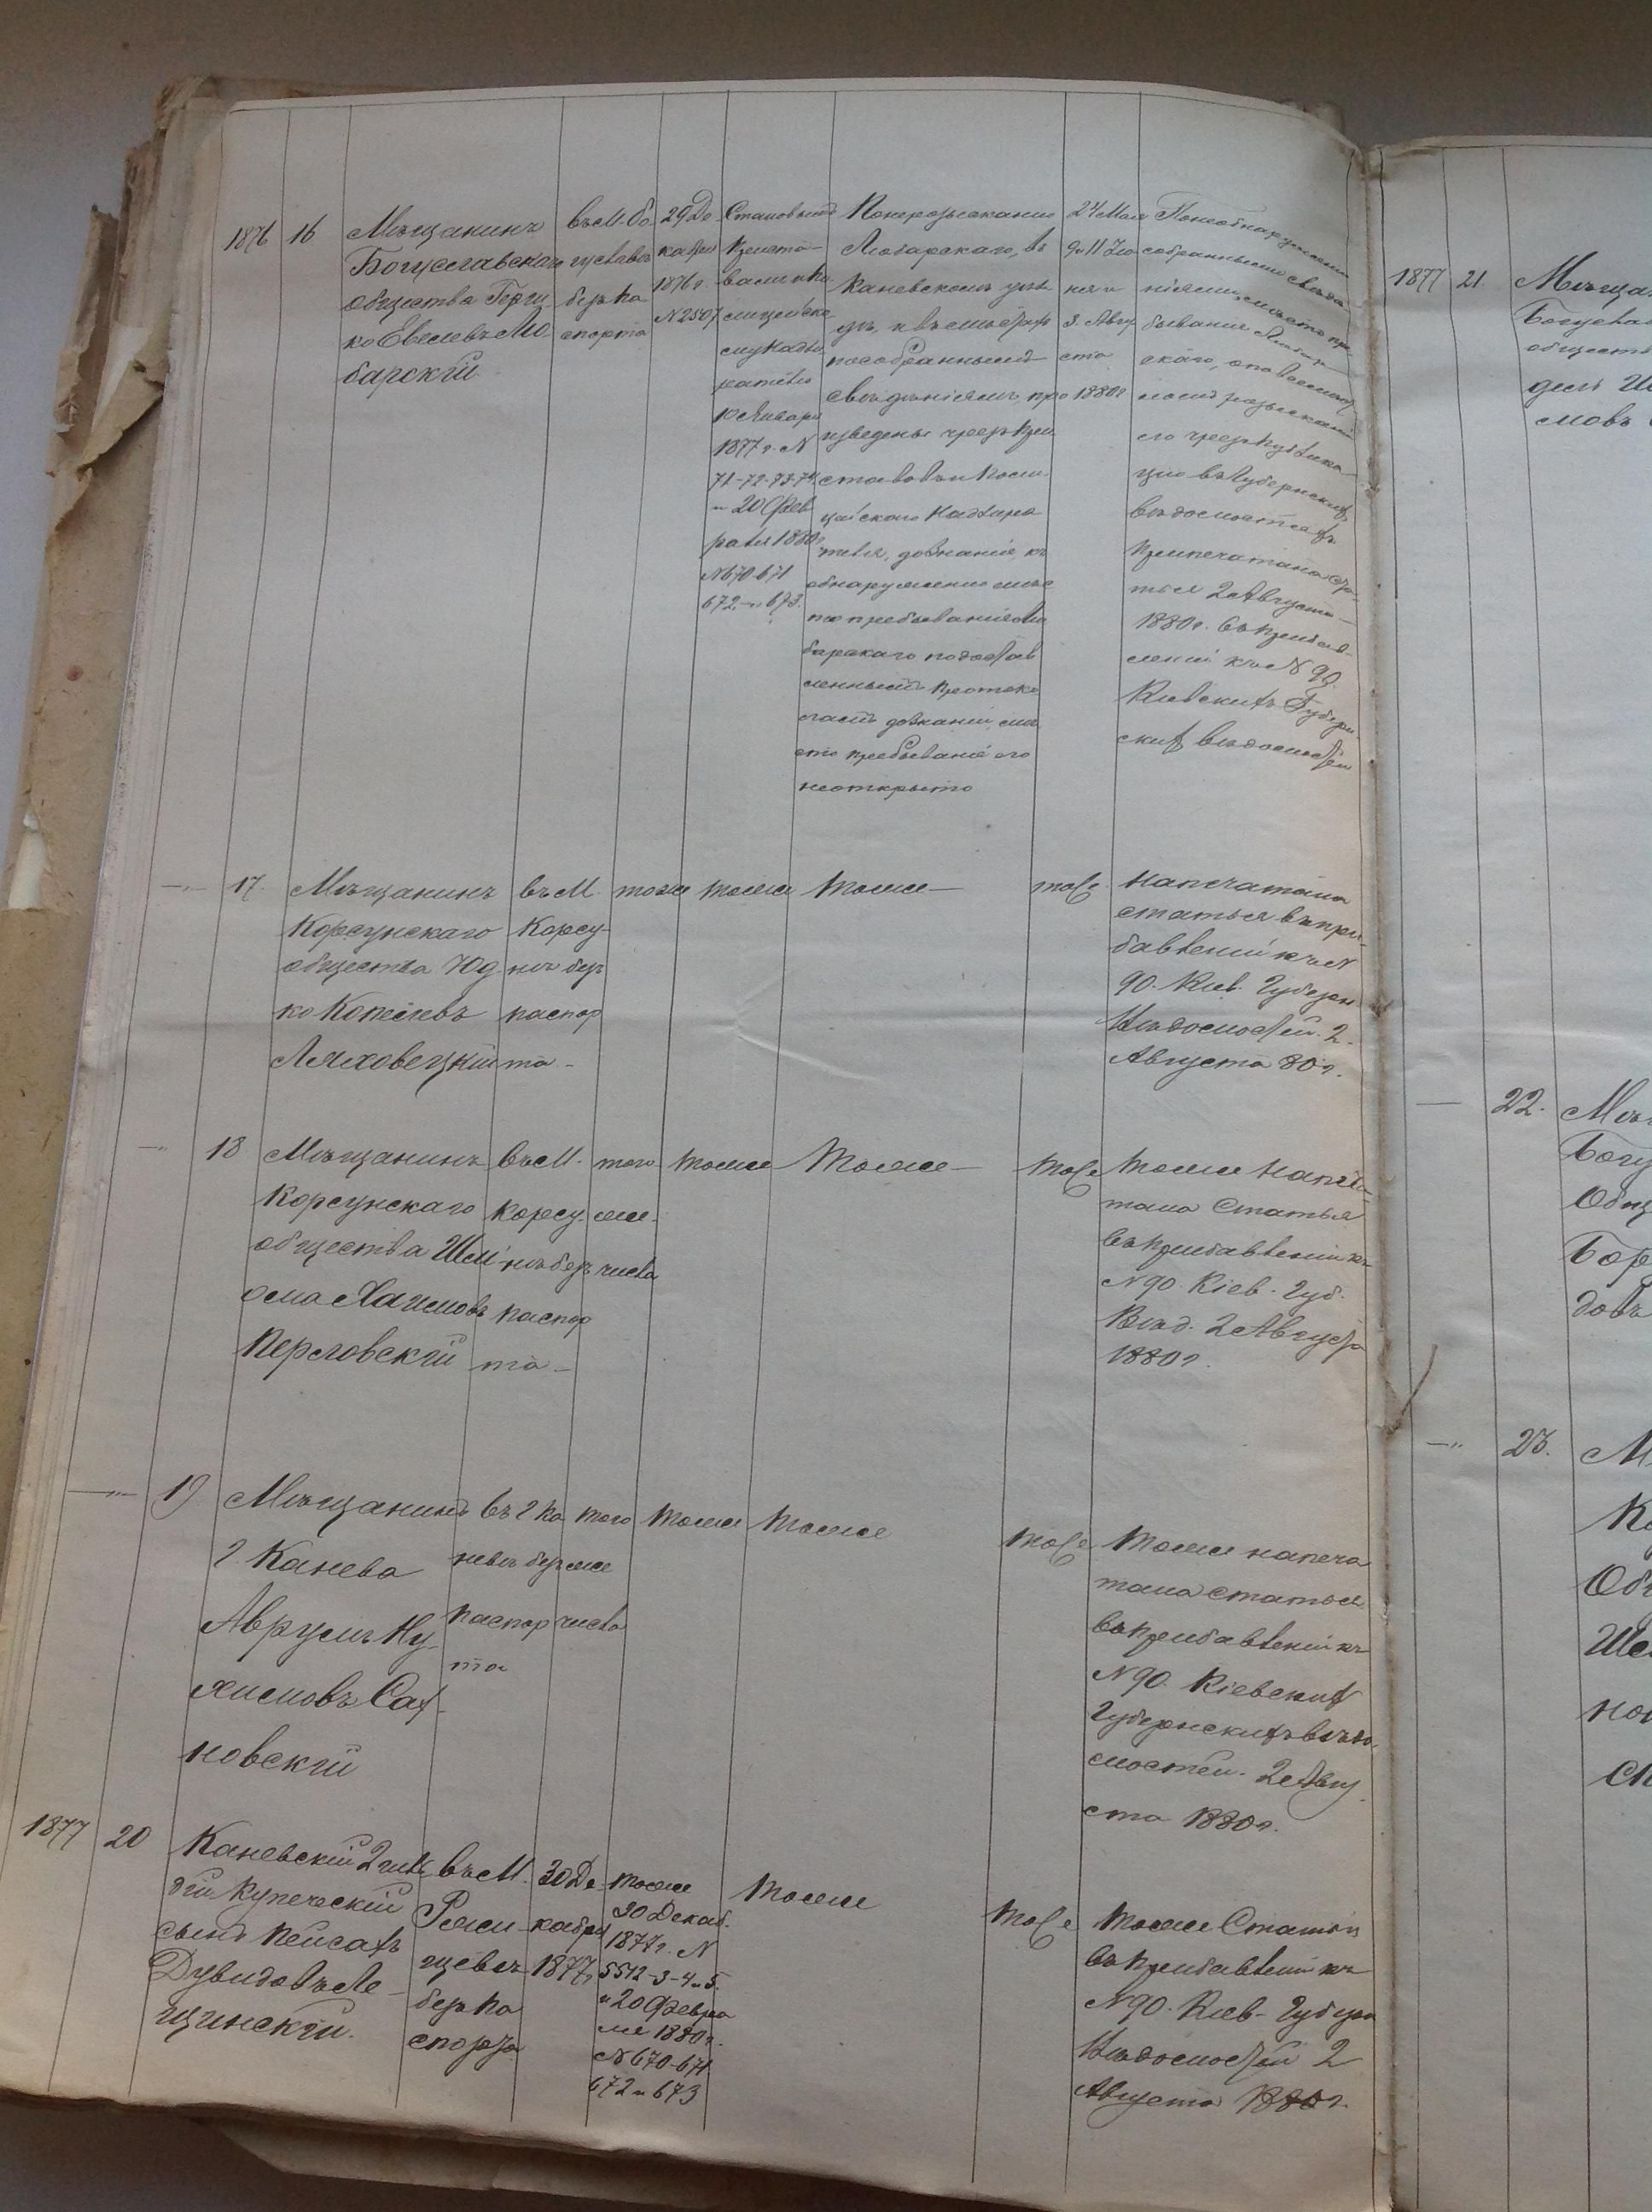 1876
16
Мѣщанинъ
Богуславскаго
общества Герш
ко Евелевъ Лю
барскій
въ М. Бо
гуславѣ
безъ па
спорта
29 Де
кабря
1876 г.
N 2507
Становымъ
Приста-
вамъ и по
лицейско
му надзи
рателю
10 Января
1877 г. N
71-72-73-74
и 20 Фев
раля 1880 г.
N 670-671
672 и 673.
По нерозысканію
Любарскаго, въ
Каневскомъ уѣз
дѣ, и въ мѣстахъ
по собраннымъ
свѣдѣніямъ, про
изведены чрезъ При
ставовъ и Поли
цейскаго Надзира
теля, дознанія, къ
обнаруженію мѣс
та пребыванія Лю
барскаго по достав
леннымъ протоко
ламъ дознаній, мѣ
сто пребываніе его
не открыто
24 Мая
9 и 11 Ію
ня и
3 Авгу
ста
1880 г
По необнаруженію
собранными свѣдѣ
ніями, мѣсто пре-
быванія Любар
скаго, о повсемѣст
номъ розысканіи
его чрезъ публика
цію въ Губернскихъ
вѣдомостяхъ
припечатана ста-
тья 2 Августа
1880 г. въ прибав-
леніи къ N 90
Кіевскихъ Губерн
скихъ вѣдомостей
17.
Мѣщанинъ
Корсунскаго
общества Юд
ко
Ляховецкій
въ М.
Корсу-
нѣ безъ
паспор
та -
тоже
тоже
тоже
тоже
Напечатана
статья въ при-
бавленіи къ N
90. Кіев. Губерн
Вѣдомостей. 2
Августа 80 г.
18
Мѣщанинъ
Корсунскаго
общества Шлі
ома Хаимовъ
Перловскій
въ М.
Корсу
нѣ безъ
паспор
та -
того
же
числа
тоже
тоже
тоже
тоже напеча-
тана Статья
въ прибавленіи къ
N 90 Кіев. Губ.
Вѣд. 2 Августа
1880 г.
19
Мѣщанинъ
г. Канева
Аврумъ Ну
химовъ Сах
новскій
въ г Ка
невѣ безъ
паспор
та
того
же
числа
тоже
тоже
тоже
тоже напеча
тана статья
въ прибавленіи къ
N 90. Кіевскихъ
Губернскихъ вѣдо
мостей. 2 Авгу
ста 1880 г.
1877
20
Каневскій 2 гиль
діи купеческій
сынъ Пейсахъ
Дувидовъ Ле
щинскій.
въ М.
Ржи
щевѣ
безъ па
спорта
30 Де
кабря
1877 г
тоже
30 Декаб.
1877 г. N
5512-3-4 и 5.
и 20 Февра
ля 1880 г.
N 670-671
672 и 673
тоже
тоже
тоже Статья
въ прибавленіи къ
N 90. Кіев. Губерн
Вѣдомостей 2
Августа 1880 г.
1877
21.
Мѣща
Богусла
обществ
мовъ
22.
Мѣ
Богу
Общ
Бор
довъ
23.
М
Ко
Об
Ше
но
ск